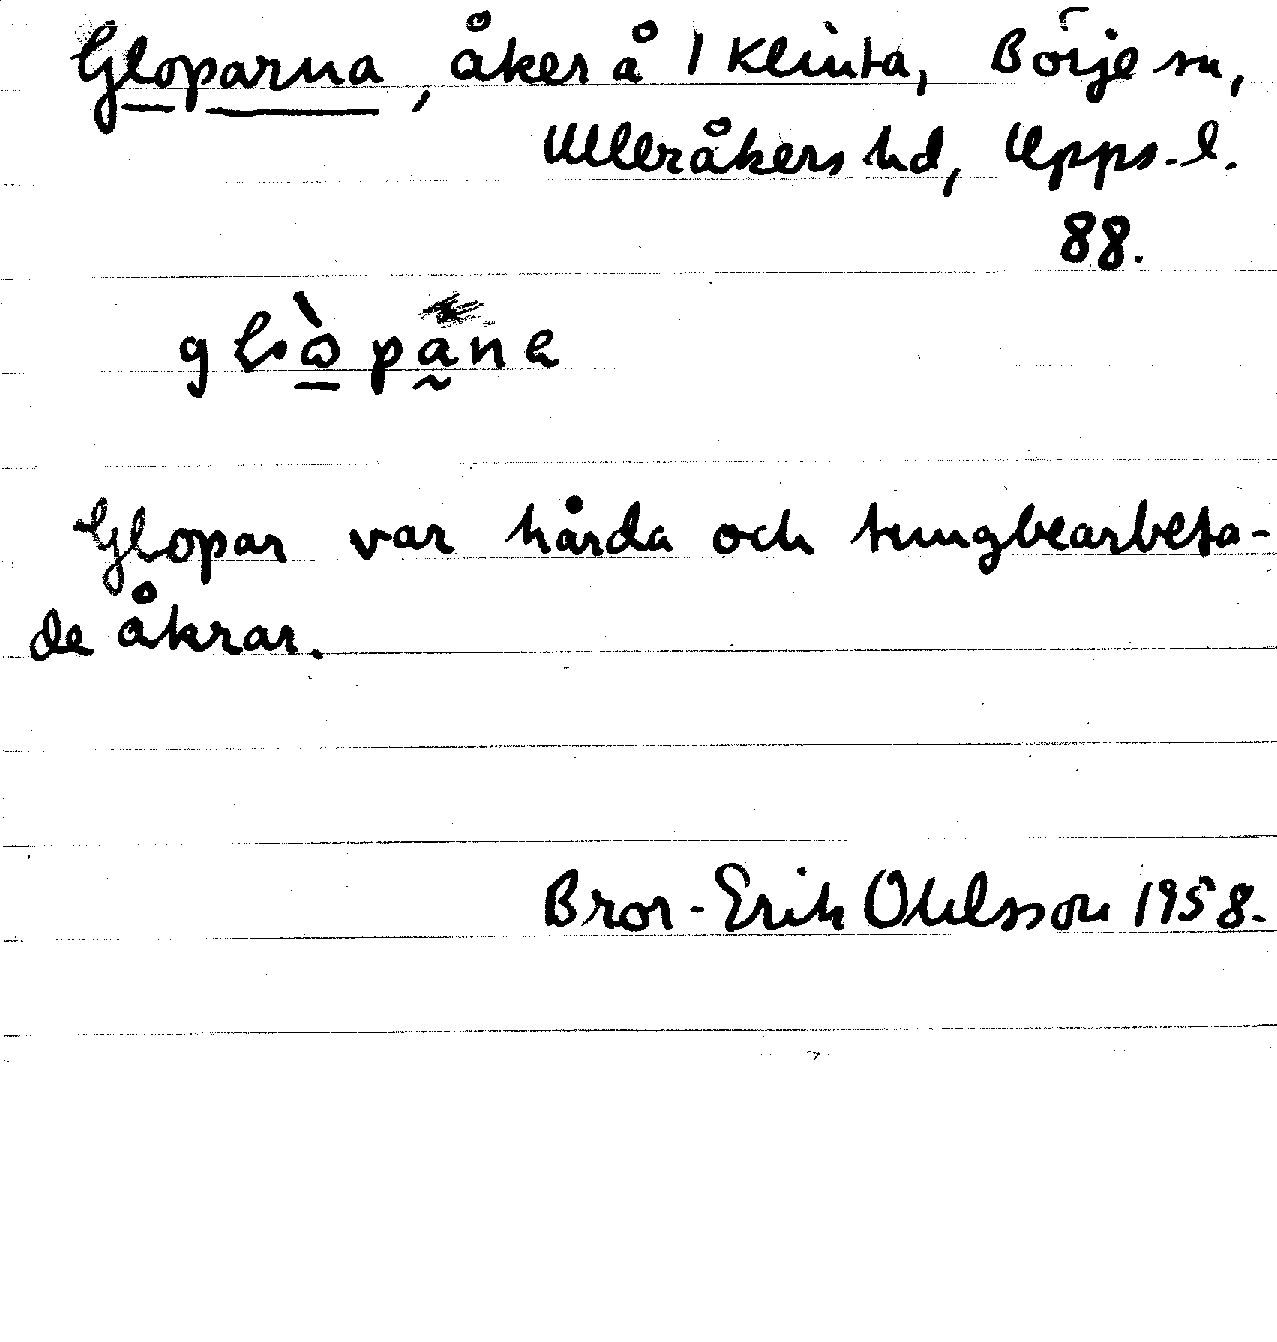 Gloparna, åker å 1 Klinta, Börje sn,
Ulleråkers hd, Upps. l.
88.
Glopar var hårda och tungbearbeta-
de åkrar.
Bror-Erik Ohlsson 1958.